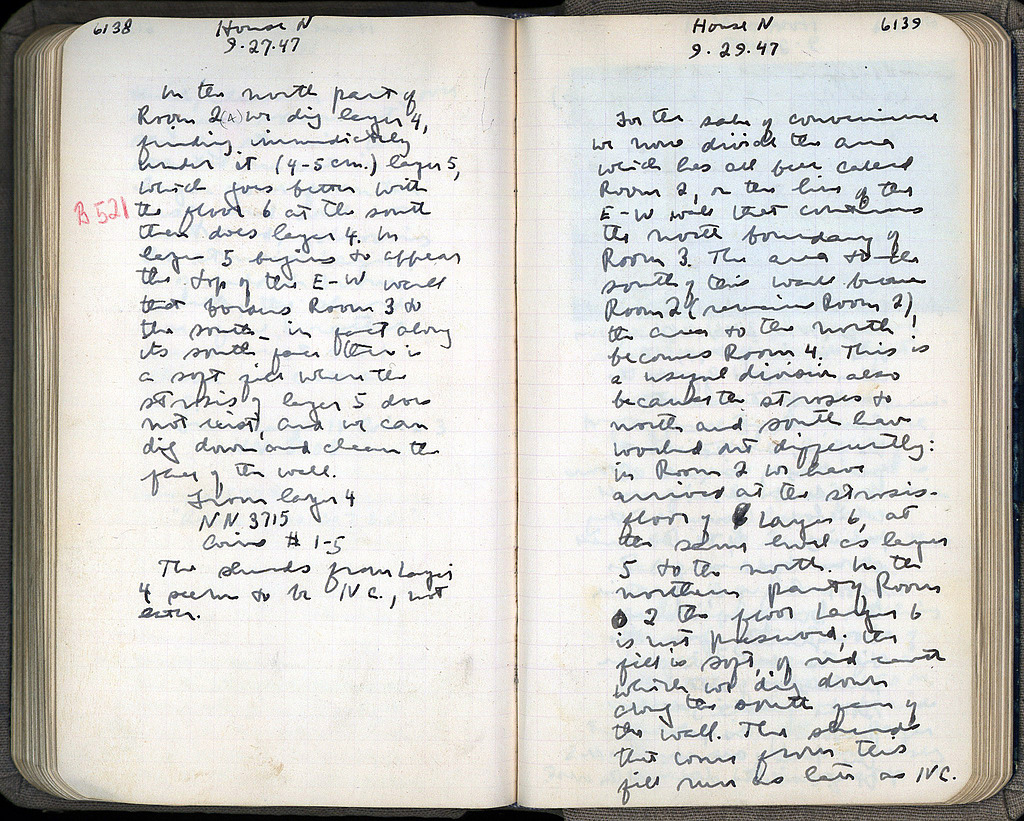 6138
House N
9.27.47
In the north part of
Room 2(4) we dig layer 4,
finding immediately
under it (4-5 cm.) layer 5,
which goes better with
B 521
the floor 6 at the south
then does layer 4. In
layer 5 begins to appear
the top of the E-W wall
that borders Room 3 to
the south - in fact along
its south face there is
a soft fill where the
strosis of layer 5 does
not exist, and we can
dig down and clean the
face of the wall.
From layer 4
NN 3715
Coins # 1-5
The sherds from layer
4 seem to be IV C., not
later.
6139
House N
9.29.47
For the sake of convenience
we now divide the area
which has all been called
Room 2, on the line of the
E-W wall that continues
the north boundary of
Room 3. The area to the
south of this wall becomes
Room 2 (remains Room 2),
the area to the north
becomes Room 4. This is
a useful division also
because the stroses to
north and south have
worked out differently:
in Room 2 we have
arrived at the strosis-
floor of Layer 6, at
the same level as layer
5 to the north. In the
northern part of Room
2 the floor Layer 6
is not preserved; the
fill is soft, of red earth
which we dig down
along the south face of
the wall. The sherds
that come from this
fill run as late as IV C.